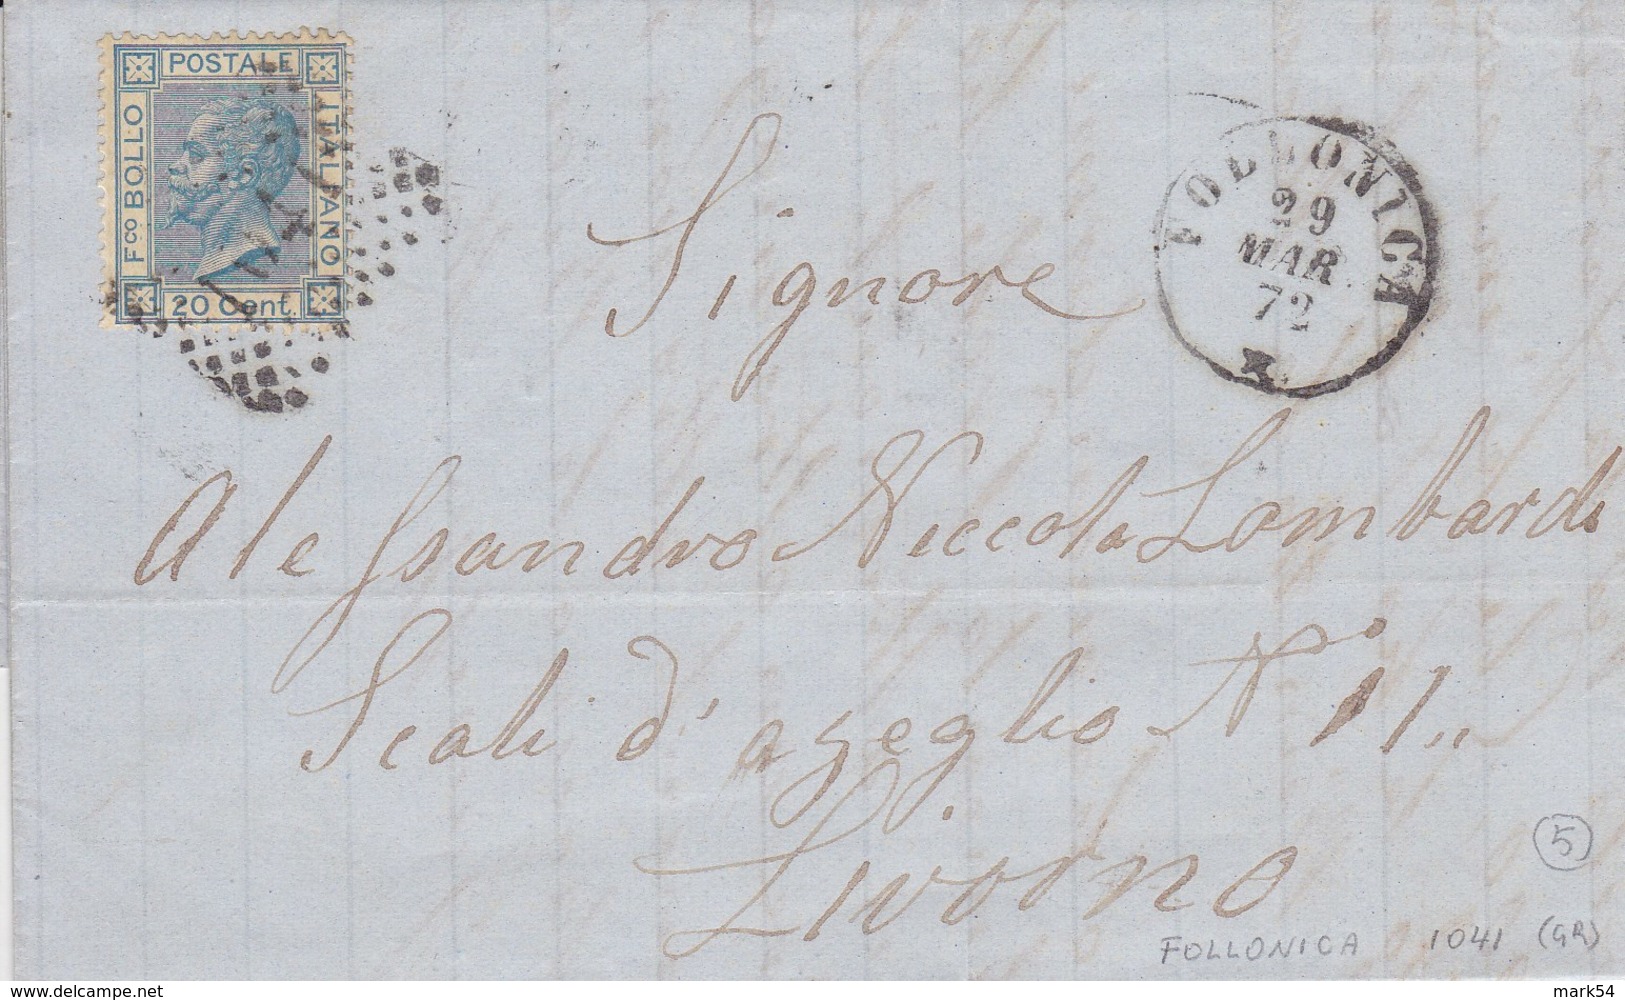 POSTALE
Fco BOLLO
ITALIANO
20 Cent.
FOLLONICA
29
MAR
72
Signore
Alessandro Niccola Lombardi
Scali d'azeglio N° 11„
Livorno
5
FOLLONICA 1041 (GR)
www.delcampe.net
mark54